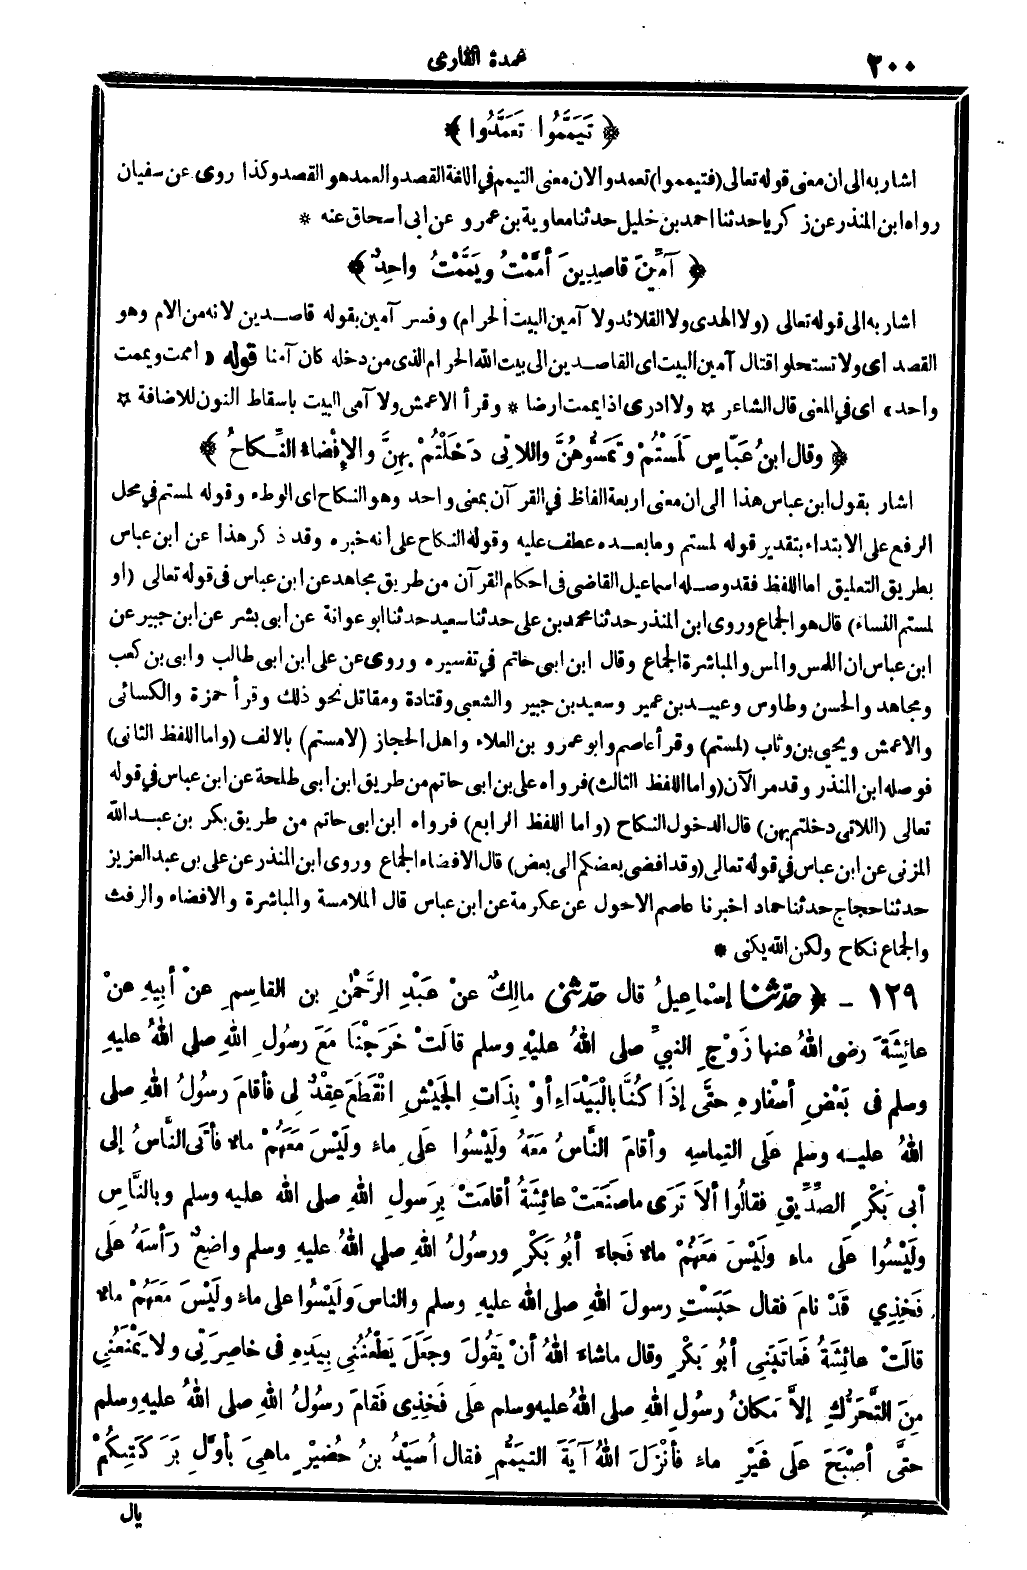 ٢٠٠ عمدة القارى
﴿ تَيَمَّمُوا تَعَمَّدُوا ﴾
اشار به الى ان معنى قوله تعالى (فتيمموا) تعمدوا لان معنى التيمم في اللغة القصد والعمد هو القصد وكذا روى عن سفيان
رواه ابن المنذر عن زكريا حدثنا احمد بن خليل حدثنا معاوية بن عمرو عن ابى أسحاق عنه *
﴿ آمِّينَ قاصِدِينَ أمَّمْتُ ويَمَّمْتُ واحِدٌ ﴾
اشار به الى قوله تعالى (ولا الهدى ولا القلائد ولا آمين البيت الحرام) وفسر آمين بقوله قاصدين لانه من الام وهو
القصد أى ولا تستحلوا قتال آمين البيت اى القاصدين الى بيت الله الحرام الذى من دخله كان آمنا قوله « أممت ويممت
واحد» اى في المعنى قال الشاعر * ولا ادرى اذا يممت ارضا * وقرأ الاعمش ولا آمى البيت باسقاط النون للاضافة *
﴿ وقال ابنُ عَبَّاسٍ لَمَسْتُمْ وتَمَسُّوهُنَّ واللاتِى دَخَلْتُمْ بِهِنَّ والإِفْضاءُ النِّكاحُ ﴾
اشار بقول ابن عباس هذا الى ان معنى اربعة الفاظ في القرآن بمعنى واحد وهو النكاح اى الوطء وقوله لمستم في محل
الرفع على الابتداء بتقدير قوله لمستم وما بعده عطف عليه وقوله النكاح على انه خبره وقد ذكر هذا عن ابن عباس
بطريق التعليق اما اللفظ فقد وصله اسماعيل القاضى فى احكام القرآن من طريق مجاهد عن ابن عباس فى قوله تعالى (او
لمستم النساء) قال هو الجماع وروى ابن المنذر حدثنا محمد بن على حدثنا سعيد حدثنا ابو عوانة عن أبى بشر عن ابن جبير عن
ابن عباس ان اللمس والمس والمباشرة الجماع وقال ابن ابى حاتم في تفسيره وروى عن على ابن ابى طالب وابى بن كعب
ومجاهد والحسن وطاوس وعبيد بن عمير وسعيد بن جبير والشعبى وقتادة ومقاتل نحو ذلك وقرأ حمزة والكسائى
والاعمش ويحيى بن وثاب (لمستم) وقرأ عاصم وابو عمرو بن العلاء واهل الحجاز (لامستم) بالالف (واما اللفظ الثانى)
فوصله ابن المنذر وقد مر الآن (واما اللفظ الثالث) فرواه على بن ابى حاتم من طريق ابن ابى طلحة عن ابن عباس في قوله
تعالى (اللاتى دخلتم بهن) قال الدخول النكاح (واما اللفظ الرابع) فرواه ابن ابى حاتم من طريق بكر بن عبد الله
المزنى عن ابن عباس في قوله تعالى (وقد افضى بعضكم الى بعض) قال الافضاء الجماع وروى ابن المنذر عن على بن عبد العزيز
حدثنا حجاج حدثنا حماد اخبرنا عاصم الاحول عن عكرمة عن ابن عباس قال الملامسة والمباشرة والافضاء والرفث
والجماع نكاح ولكن الله يكنى *
١٢٩ - ﴿ حدّثنا إسْماعِيلُ قال حدّثنى مالِكٌ عنْ عَبْدِ الرَّحْمٰنِ بنِ القاسِمِ عنْ أبِيهِ عنْ
عائِشَةَ رضى اللهُ عنها زَوْجِ النبيِّ صلى اللهُ عليْهِ وسلم قالَتْ خَرَجْنَا مَعَ رسُولِ اللهِ صلى اللهُ عليهِ
وسلم فى بَعْضِ أسْفارِهِ حتَّى إذَا كُنَّا بالْبَيْدَاءِ أوْ بِذَاتِ الجَيْشِ انْقَطَعَ عِقْدٌ لِى فأقامَ رسُولُ اللهِ صلى
اللهُ عليه وسلم علَى التِماسِهِ وأقامَ النَّاسُ مَعَهُ ولَيْسُوا علَى ماءٍ ولَيْسَ مَعَهُمْ ماءٌ فأتَى النَّاسُ إلى
أبى بَكْرٍ الصِّدِّيقِ فقالُوا ألاَ تَرَى ما صَنَعَتْ عائِشَةُ أقامَتْ بِرَسولِ اللهِ صلى الله عليه وسلم وبالنَّاسِ
ولَيْسُوا علَى ماءٍ ولَيْسَ مَعَهُمْ ماءٌ فَجاءَ أبُو بَكْرٍ ورسُولُ اللهِ صلى اللهُ عليهِ وسلم واضِعٌ رَأسَهُ علَى
فَخِذِي قَدْ نامَ فقال حَبَسْتِ رسولَ اللهِ صلى الله عليهِ وسلم والناسَ ولَيْسُوا على ماءٍ ولَيْسَ مَعَهُمْ ماءٌ
قالَتْ عائِشَةُ فَعاتَبَنِى أبُو بَكْرٍ وقال ماشاءَ اللهُ أنْ يَقُولَ وجَعَلَ يَطْعُنُنِى بِيَدِهِ فى خاصِرَتِى ولا يَمْنَعُنِى
مِنَ التَّحَرُّكِ إلاَّ مَكانُ رسُولِ اللهِ صلى اللهُ عليه وسلم علَى فَخِذِى فَقامَ رسُولُ اللهِ صلى اللهُ عليهِ وسلم
حتَّى أصْبَحَ علَى غَيْرِ ماءٍ فأنْزَلَ اللهُ آيَةَ التيَمُّمِ فقال أُسَيْدُ بنُ حُضَيْرٍ ماهِىَ بأوَّلِ بَرَكَتِكُمْ
يال